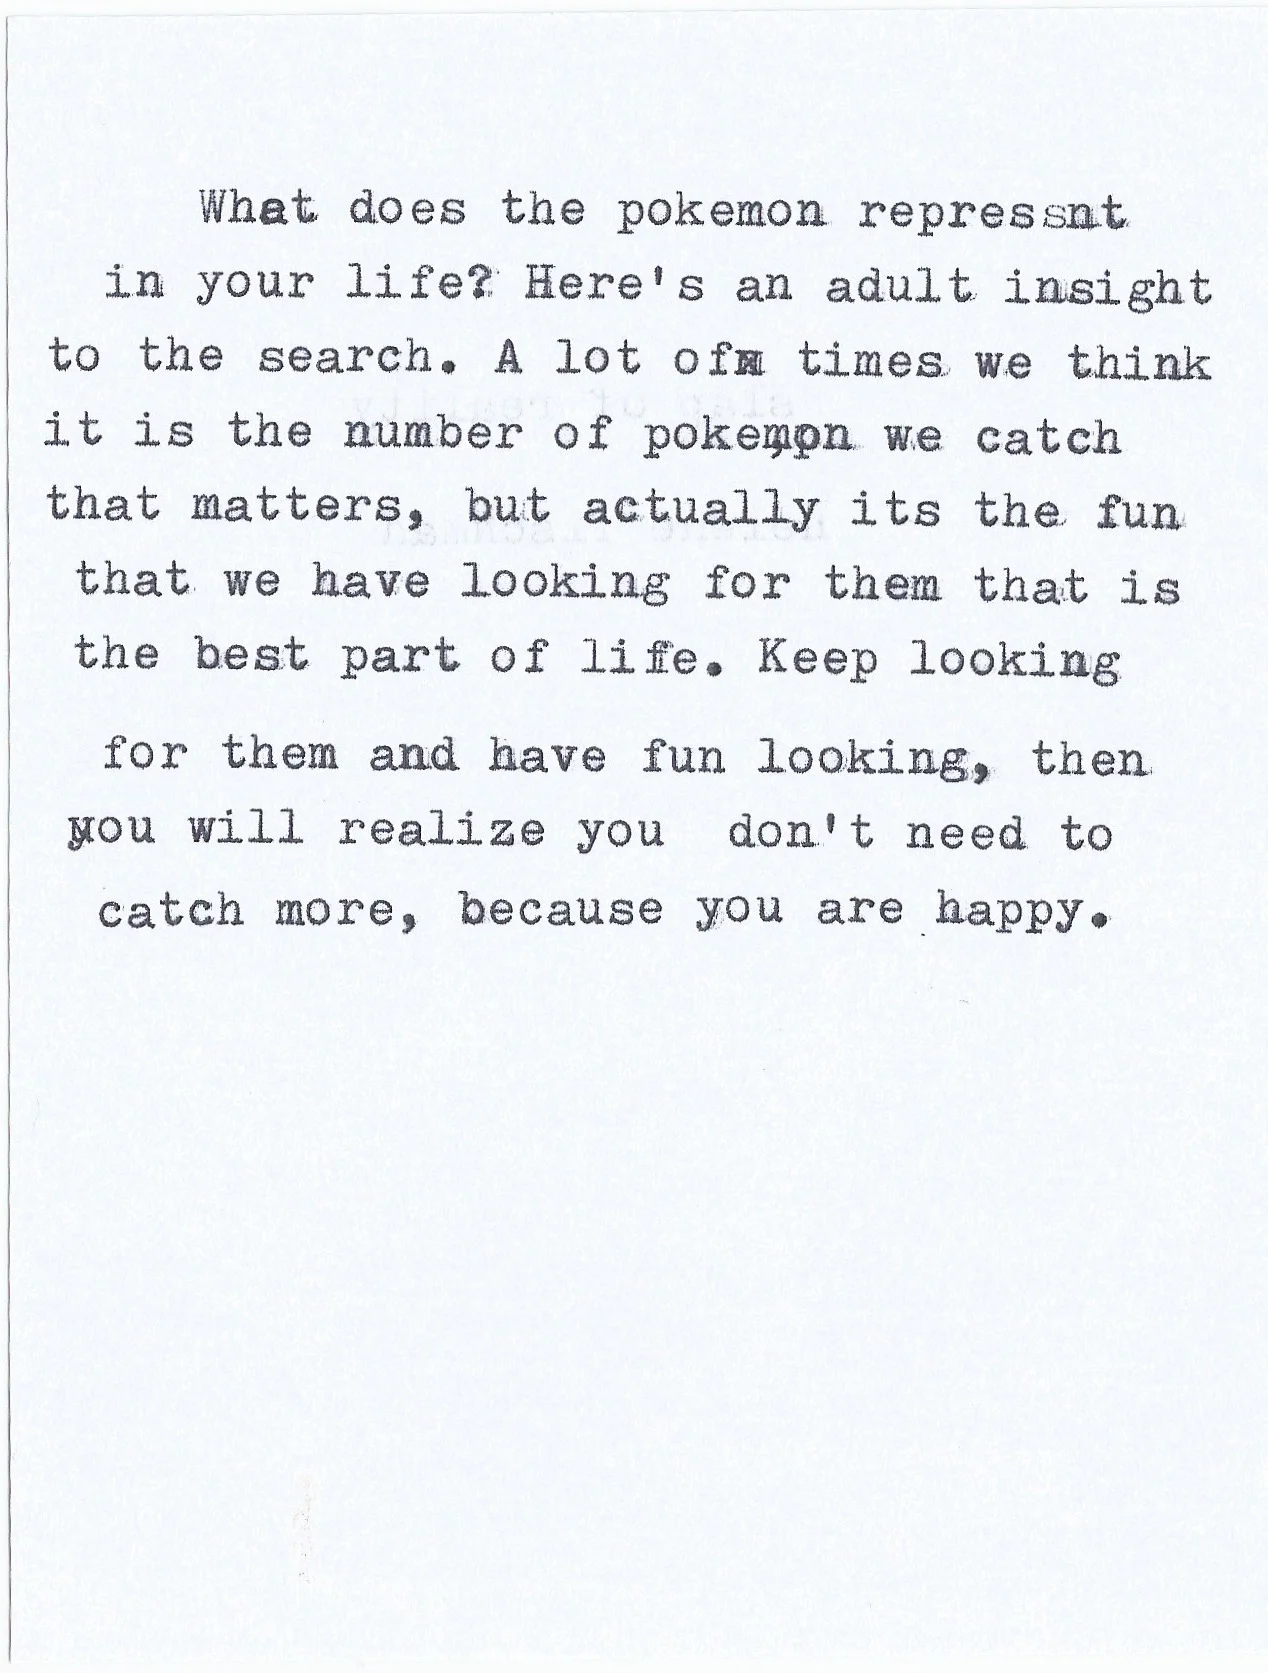 What does the pokemon repressnt
in your life? Here's an adult insight
to the search. A lot of times we think
it is the number of pokempn we catch
that matters, but actually its the fun
that we have looking for them that is
the best part of life. Keep looking
for them and have fun looking, then
you will realize you don't need to
catch more, because you are happy.